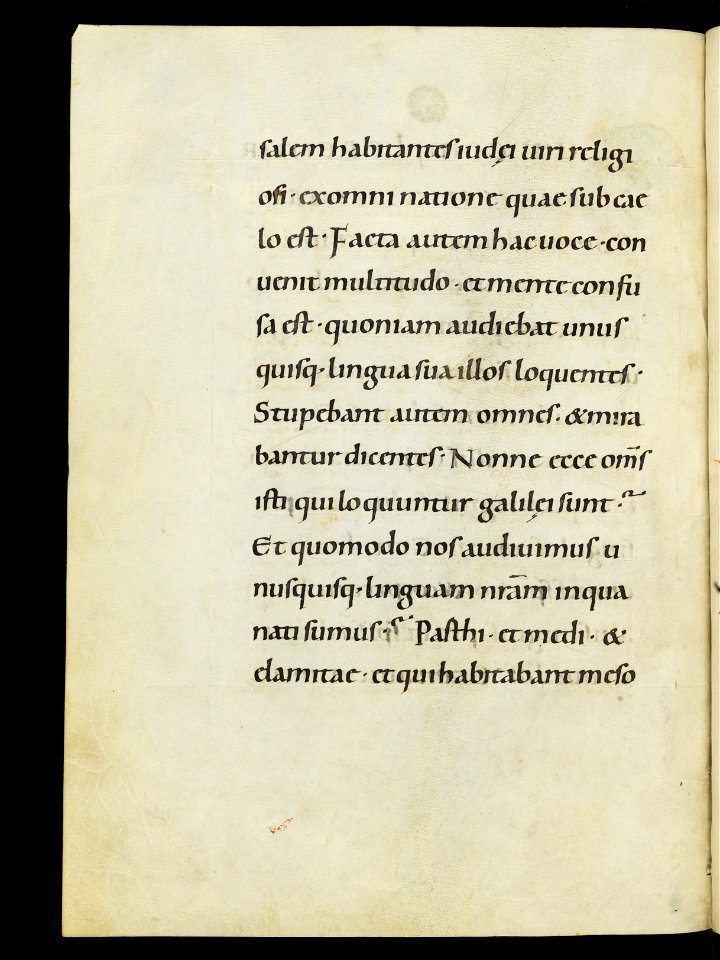 salem habitantes iudęi uiri religi
osi · ex omni natione quae sub cae
lo est · Facta autem hac uoce · con
uenit multitudo · et mente confu
sa est · quoniam audiebat unus
quisq· lingua sua illos loquentes ·
Stupebant autem omnes · & mira
bantur dicentes · Nonne ecce om̅s
isti qui loquuntur galilęi sunt ·
Et quomodo nos audiuimus u
nusquisq· linguam nr̅am in qua
nati sumus · Pasthi · et medi · &
elamitae · et qui habitabant meso